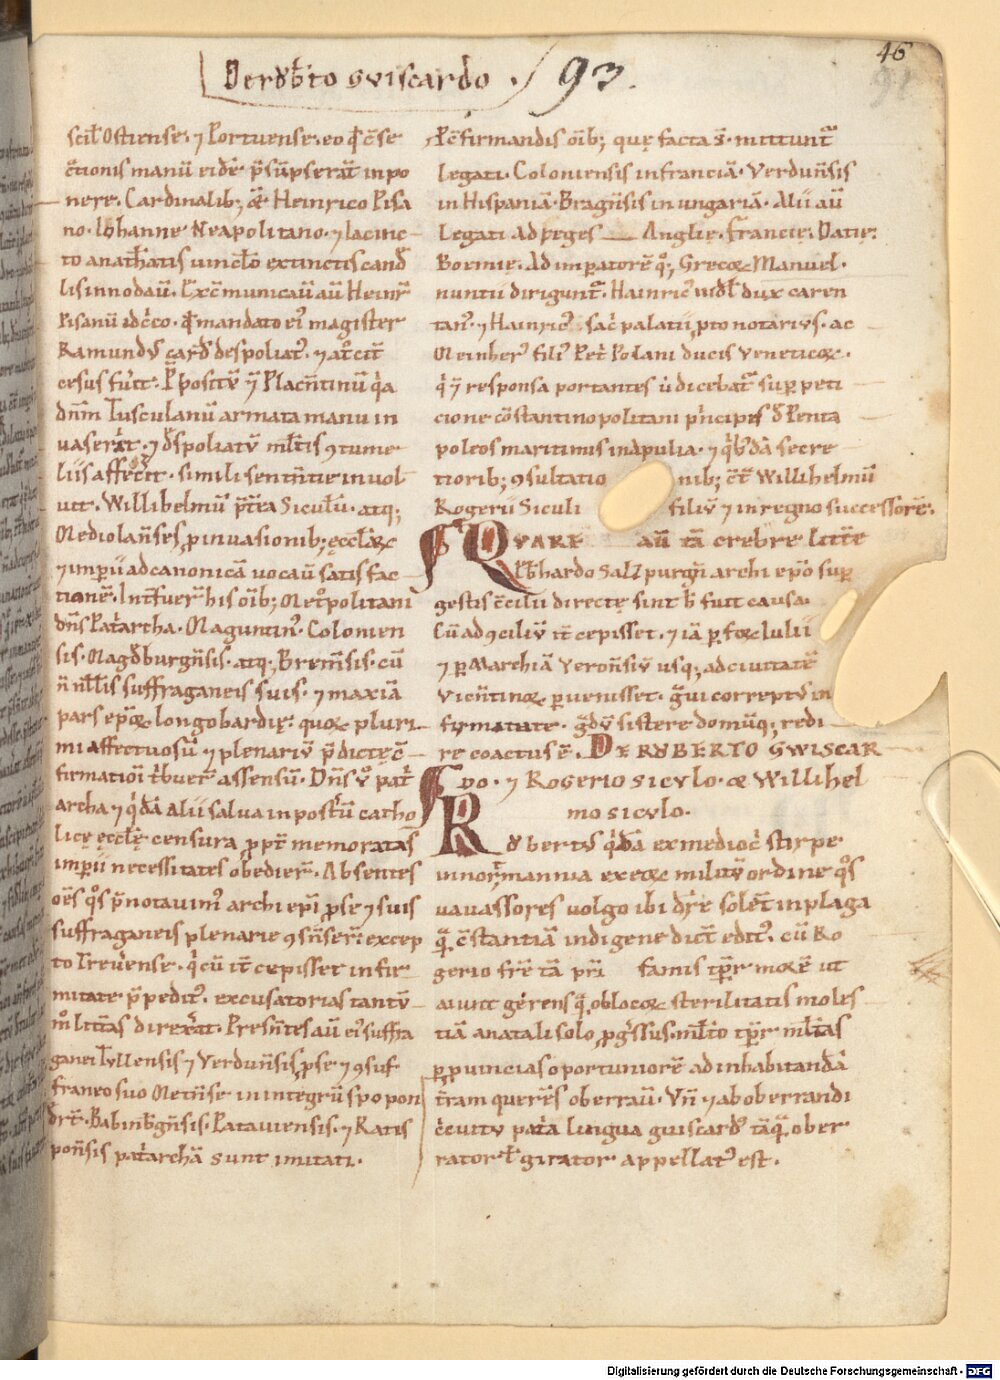 De rŏb̄to gviscardo . 93.
46
scil̄ Ostiense. ⁊ Portuense. eo qđ c̄se
c̄tionis manū eidē p̄ sūpserāt in po
nere. Cardinalib; Heinrico Pisa
no. Iohanne Neapolitano. ⁊ Iacinc
to anath̄atis uincl̄o extinctis cand̄
lis innodaū. Exc̄municaū aū Heinr̄
Pisanū idc̄co. qđ mandato ei᾽ magister
Ramund᾽ card̄ despoliat᾽. ⁊
cesus fūt. P̄positū Placn̄tinū q̇a
dn̄m Tusculanū armata manu in
uaserāt. ⁊ despoliatū ml̄tis ꝯtume
liis affec̄t. simili sentn̄tie inuol
uit. Willihelmū p̄t̄ea Sicul̄u. atq;
Mediolan̄ses, ꝓ inuasionib; ęccl̄aꝝ
⁊ imp̄ii ad canonicā uocaū satisfac
tionē. Int̄fuer̄ his oīb; Met᾽politani
dn̄s Pat̄archa. Maguntin᾽. Colonien
sis. Magd̄burgn̄sis. atq; Brem̄sis. cū
suffraganeis suis. ⁊ maxīa
pars epōꝝ longobardię. quoꝝ pluri
mi affectuosū ⁊ plenariū p̄dictę c̄
firmatiōi t̄buer̄ assensū. Dn̄s ū pat̄
archa ⁊ q̇dā alii salua in post̄ū catho
licę ęccl̄ę censura ꝓpt̄ memoratas
imp̄ii necessitates obedier̄. Absentes
oēs q᾽s p̄notauim᾽ archiep̄i ꝑ se ⁊ suis
suffraganeis plenarie ꝯsn̄ser̄. excep
to Treuense. q̇ cū it᾽ cepisset infir
mitate p̄pedit᾽. excusatorias tantū
m᾽ litt̄as direxāt. Presn̄tes aū ei᾽ suffra
ganei Tullensis ⁊ Verdun̄sis, ꝑ se ⁊ ꝯsuf
franeo suo Metn̄se in integrū spopon
dr̄t. Babinb̄gn̄sis. Patauiensis. ⁊ Ratis
pon̄sis pat̄archā sunt imitati.
Pc̄firmandis oīb; quę facta s̄. mittunt᾽
legati. Coloniensis in franciā. Verdun̄sis
in Hispaniā. Bragn̄sis in ungariā. Alii aū
legati ad reges Anglię. francię. Datię.
Boemię. Ad imꝑatorē q; Grecoꝝ Manuel.
nuntii dirigunt᾽. Hainric᾽ uid̄l dux caren
tan᾽. ⁊ Hainric᾽ sac̄ palatii ꝓtonotariꝰ. ac
Meinher᾽ fili᾽ Pet̄ Polani ducis Veneticoꝝ.
responsa portantes ū dicebāt᾽ suꝑ peti
cione c̄stantinopolitani p̄ncipis d̄ Penta
poleos maritimis in apulia. ⁊ q̇b᾽dā secre
tiorib; ꝯsultatio nib; c̄t᾽ Willihelmū
Rogerii Siculi filiū ⁊ in regno successorē.
Qvare aū tā crebrę litt̄ę
Eb̄hardo Salzpurgn̄ archiep̄o suꝑ
gestis c̄cilii directę sint h̄ fuit causa.
Cū ad ꝯciliū it᾽ cepisset. ⁊ iā ꝑ foꝝ Iulii
⁊ ꝑ Marchiā Veron̄siū usq; ad ciuitatē
Vicn̄tinoꝝ ꝑuenisset. g᾽ui corrept᾽ in
firmitate. g᾽dū sistere domūq; redi
re coactus ē. De Rŏberto Gwiscar
do. ⁊ Rogerio sicvlo. ꝛ Willihel
mo sicvlo.
Rŏbertus q̇dā ex medioc̄ stirpe
in nor᾽mannia ex eoꝝ militū ordine q᾽s
uauassores uolgo ibi dic̄e solēt in plaga
c̄stantiā indigene dict̄ edit᾽. cū Ro
gerio fr̄e tā p̄ri famis tꝑr̄
aiunt gerens oblocoꝝ sterilitatis moles
tiā a natali solo ꝓgr̄ssus. ml̄to tꝑr̄ ml̄tas
ꝑ ꝓuincias oportuniorē ad inhabitandā
t̄ram quer̄es oberraū. Vn̄ ⁊ ab oberrandi
c̄euitū pat̄a lingua guiscard᾽ tāq̇ ober
rator l̄ girator appellat᾽ est.
Digitalisierung gefördert durch die Deutsche Forschungsgemeinschaft - DFG